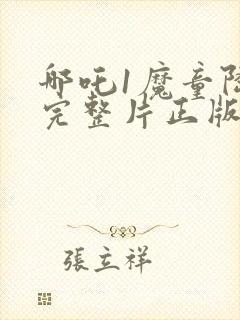 哪吒1魔童降
完整片正版
張立祥